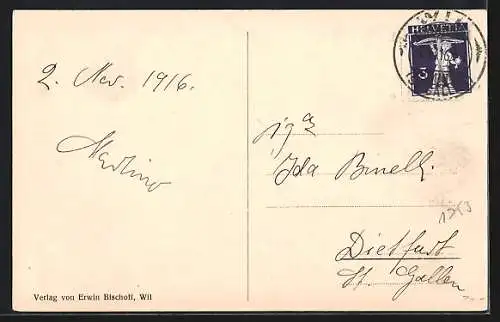 HELVETIA
3
2. Nov. 1916.
Sig.a
Ida Binelli
1253
Dietfurt
St. Gallen
Verlag von Erwin Bischoff, Wil